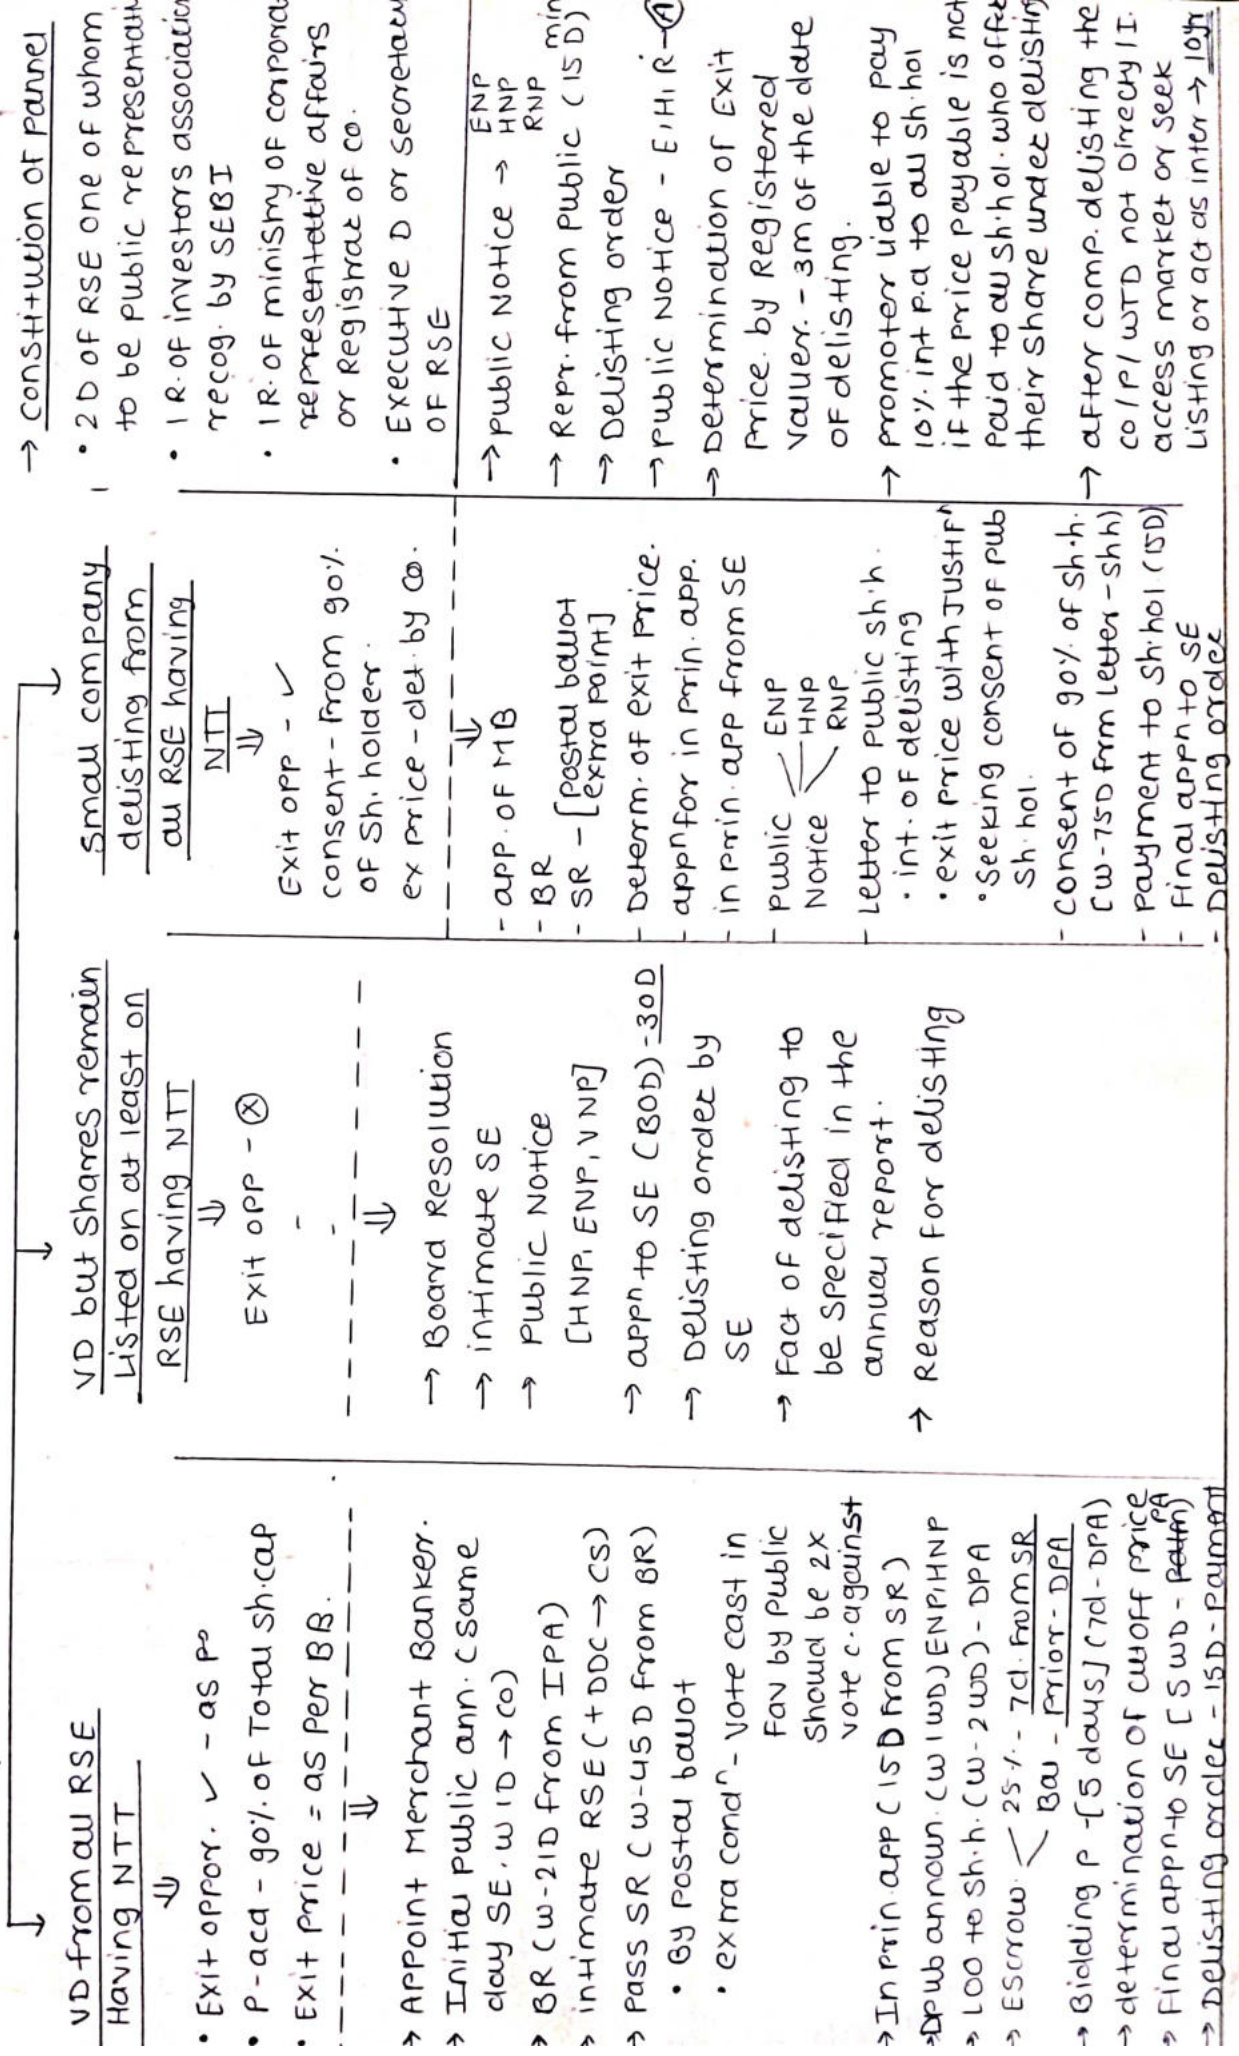 VD from all RSE
Having NTT
• Exit oppor. ✓ - as po
• P - acd - 90% of Total sh.cap
• Exit price = as per BB.
→ Appoint Merchant Banker.
→ Initial Public ann. (same
day SE. w 1D → co)
→ BR (w-21D from IPA)
→ intimate RSE (+ DDC → CS)
→ Pass SR (w-45D from BR)
• By postal ballot
• extra condn - vote cast in
Fav by public
should be 2x
vote c. against
→ In prin. app (15D from SR)
→ D pub announ. (w 1WD) ENP, HNP
→ LOO to sh.h. (w-2WD) - DPA
→ Escrow < 25% - 7d. from SR
Bal - prior - DPA
→ Bidding P - [5 days] (7d - DPA)
→ determination of cutoff price
→ Final appn to SE [5 WD - PA)
→ Delisting order - 15D - payment
VD but shares remain
Listed on at least on
RSE having NTT
Exit opp - ⓧ
→ Board Resolution
→ intimate SE
→ Public Notice
[HNP, ENP, VNP]
→ appn to SE (BOD) - 30D
→ Delisting order by
SE
→ Fact of delisting to
be specified in the
annual report.
→ Reason for delisting
Small company
delisting from
all RSE having
NTT
Exit opp - ✓
consent - from 90%
of sh. holder.
ex price - det. by co.
- app. of MB
- BR
- SR - [postal ballot
extra point]
- Determ. of exit price.
- appn for in prin. app.
- in prin. app from SE
- Public ENP
Notice HNP
RNP
- Letter to public sh.h.
• int. of delisting
• exit price with justifn
• seeking consent of pub
sh. hol.
- consent of 90% of sh.h.
[w-75D from letter - shh)
- payment to sh.hol (15D)
- Final appn to SE
- Delisting order
→ constitution of pannel
• 2D of RSE one of whom
to be public
• 1R. of investors
recog. by SEBI
• 1R. of ministry of
representative affairs
or Registrar of co.
• Executive D or
of RSE
→ Public Notice → ENP
HNP
RNP
→ Repr. from public (15D) min
→ Delisting order
→ public Notice - E, H, R - Ⓐ
→ Determination of Exit
price. by Registered
valuer. - 3m of the date
of delisting.
→ promoter liable to pay
10% int p.a to all sh.hol
if the price payable is not
paid to all sh.hol. who
their share under delisting
→ after comp. delisting the
co / P / WTD not Directly / I.
access market or seek
Listing or act as inter → 10yr